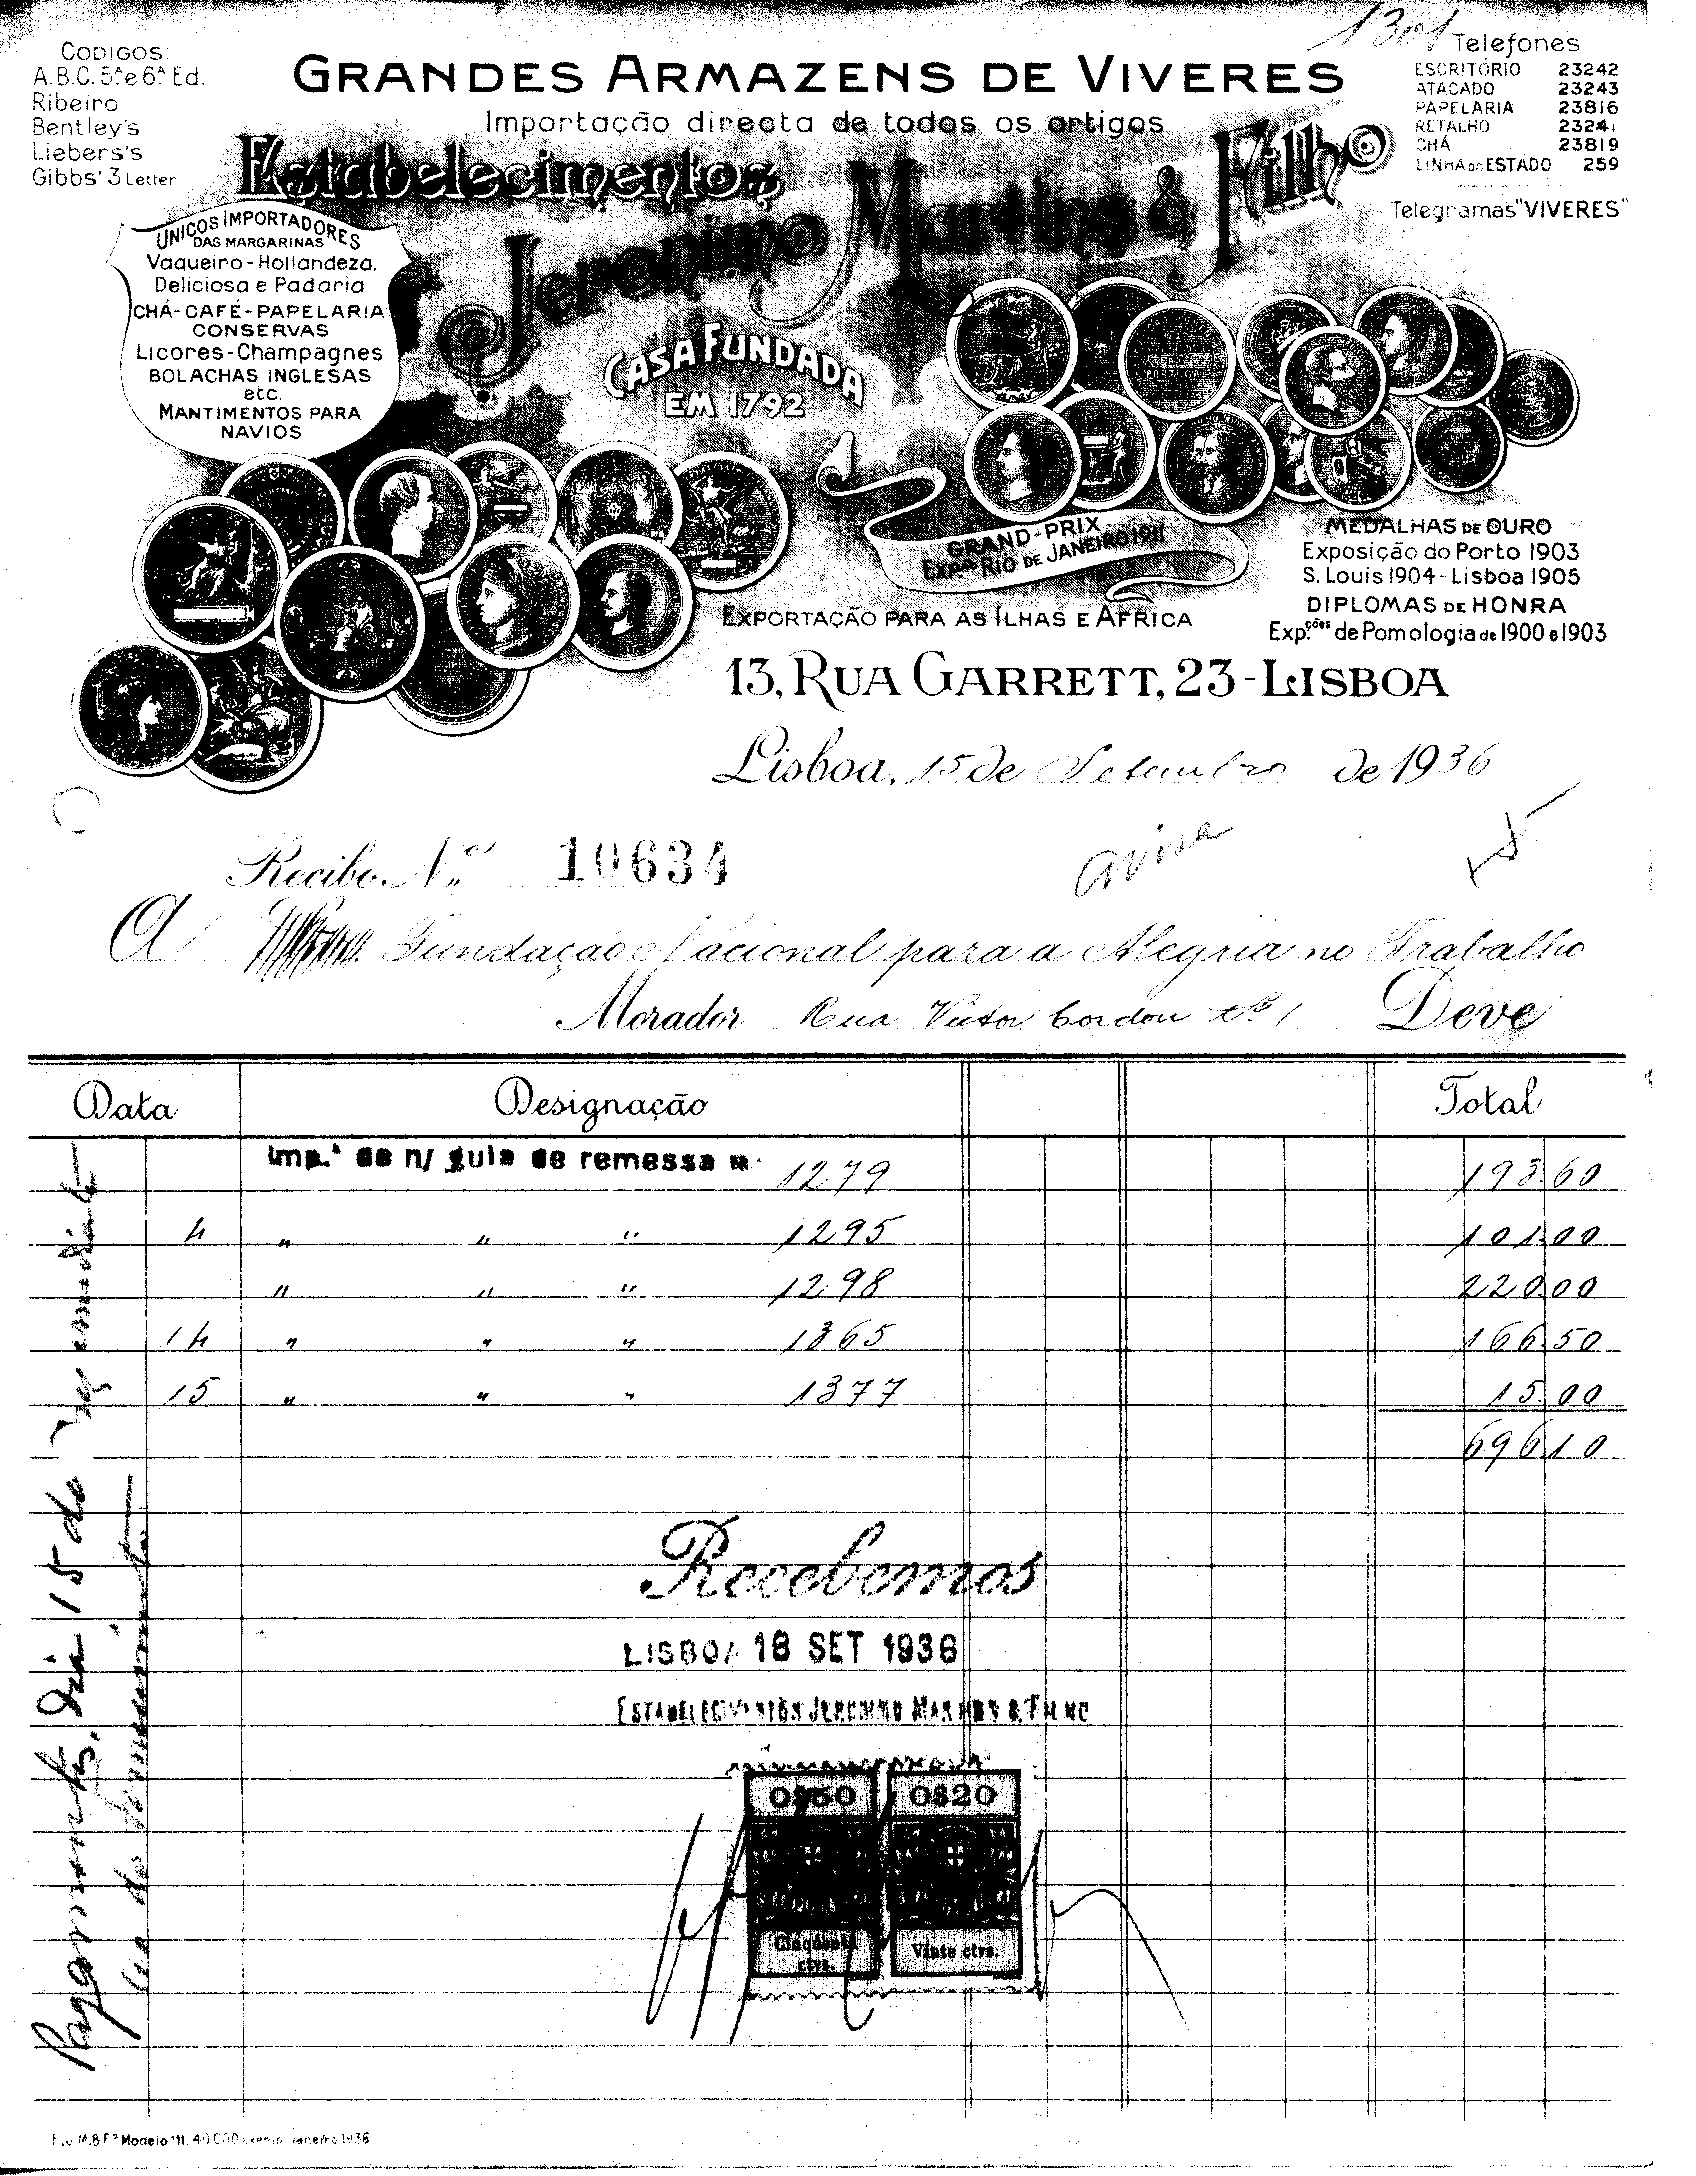 1301
CODIGOS:
A.B.C. 5ª e 6ª Ed.
Ribeiro
Bentley's
Liebers's
Gibbs' 3 Letter
GRANDES ARMAZENS DE VIVERES
Importação directa de todos os artigos
Estabelecimentos
Jeronimo Martins & Filho
Telefones
ESCRITÓRIO 23242
ATACADO 23243
PAPELARIA 23816
RETALHO 23241
CHÁ 23819
LINHA DE ESTADO 259
Telegramas "VIVERES"
UNICOS IMPORTADORES
DAS MARGARINAS
Vaqueiro-Hollandeza,
Deliciosa e Padaria
CHÁ-CAFÉ-PAPELARIA
CONSERVAS
Licores-Champagnes
BOLACHAS INGLESAS
etc.
MANTIMENTOS PARA
NAVIOS
CASA FUNDADA
EM 1792
GRAND-PRIX
Expção RIO DE JANEIRO 1911
MEDALHAS DE OURO
Exposição do Porto 1903
S. Louis 1904-Lisboa 1905
DIPLOMAS DE HONRA
Exp.ções de Pomologia de 1900 e 1903
EXPORTAÇÃO PARA AS ILHAS E AFRICA
13, RUA GARRETT, 23-LISBOA
Lisboa, 15 de Setembro de 1936
Recibo N.º 10634
A Fundação Nacional para a Alegria no Trabalho
Morador Rua Victor Cordon nº 1 Deve
Data Designação Total
Imp.ª de n/ guia de remessa n.º 1279 193.60
4 " " " 1295 101.00
" " " 1298 220.00
14 " " " 1365 166.50
15 " " " 1377 15.00
696.10
Recebemos
LISBOA 18 SET 1936
ESTABELECIMENTOS JERONIMO MARTINS & FILHO
0$50 0$20
Cinquenta ctvs. Vinte ctvs.
Pagamento, dia 15 de